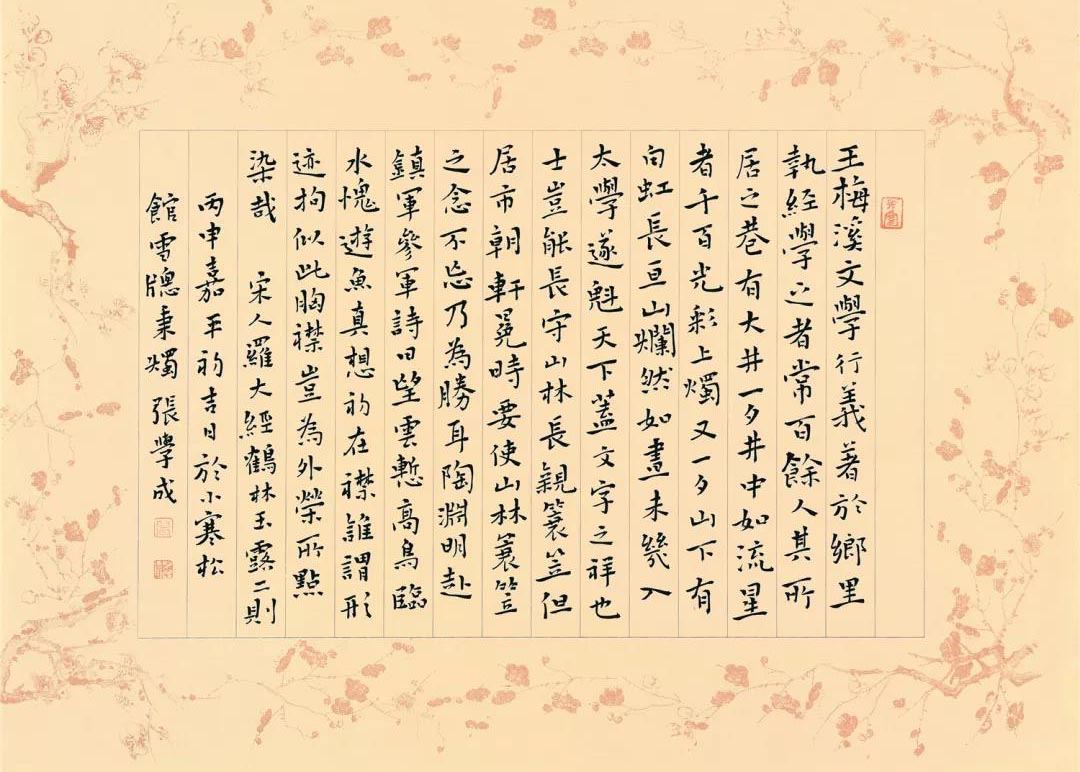 王梅溪文學行義著於鄉里
執經學之者常百餘人其所
居之巷有大井一夕井中如流星
者千百光彩上燭又一夕山下有
白虹長亘山爛然如晝未幾入
太學遂魁天下蓋文字之祥也
士豈能長守山林長親蓑笠但
居市朝軒冕時要使山林蓑笠
之念不忘乃為勝耳陶淵明赴
鎮軍參軍詩曰望雲慙高鳥臨
水愧遊魚真想初在襟誰謂形
迹拘似此胸襟豈為外榮所點
染哉 宋人羅大經鶴林玉露二則
丙申嘉平初吉日於小寒松
館雪牕秉燭 張學成